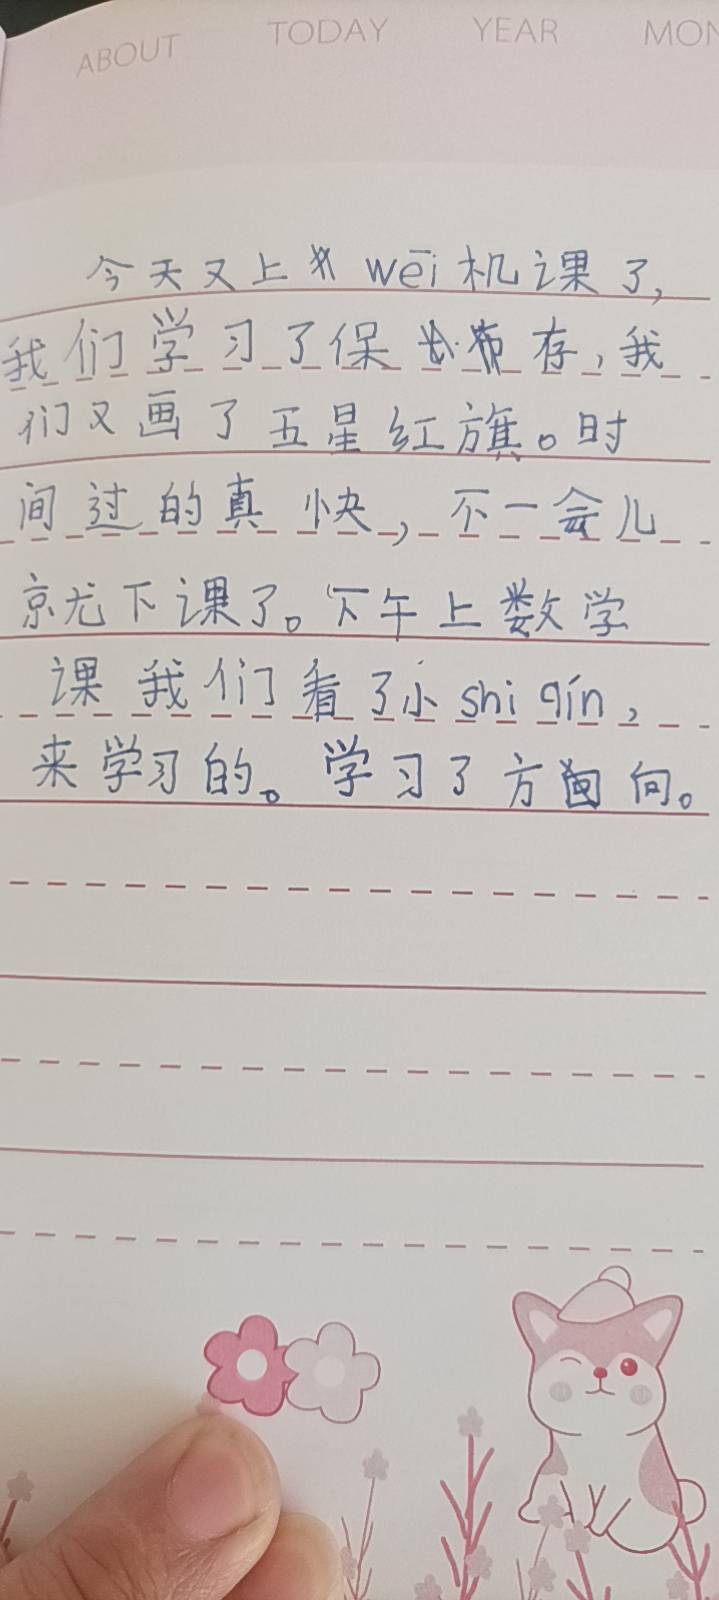 ABOUT TODAY YEAR MON
今天又上 wēi机课了,
我们学习了保存,我
们又画了五星红旗。时
间过的真快,不一会儿
京尤下课了。下午上数学
课我们看了小shi qín,
来学习的。学习了方向。